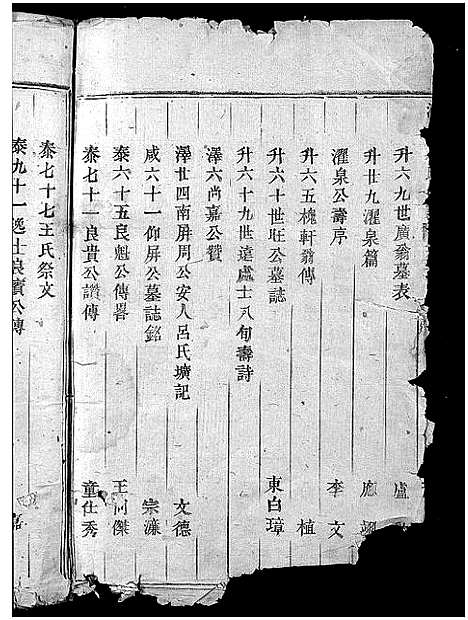 升六九世廣翁墓表 盧
升廿九濯泉篇 應
濯泉公壽序 李文
升六五槐軒翁傳 植
升六十世旺公墓誌 東白璋
升六十九世遠處士八旬壽詩
澤六尚嘉公贊
澤廿四南屏周公安人呂氏壙記 文德
咸六十一仰屏公墓誌銘 宗濂
泰六十五良魁公傳畧 王同傑
泰七十一良貴公讚傳 童仕秀
泰七十七王氏祭文
泰九十一逸士良賓公傳